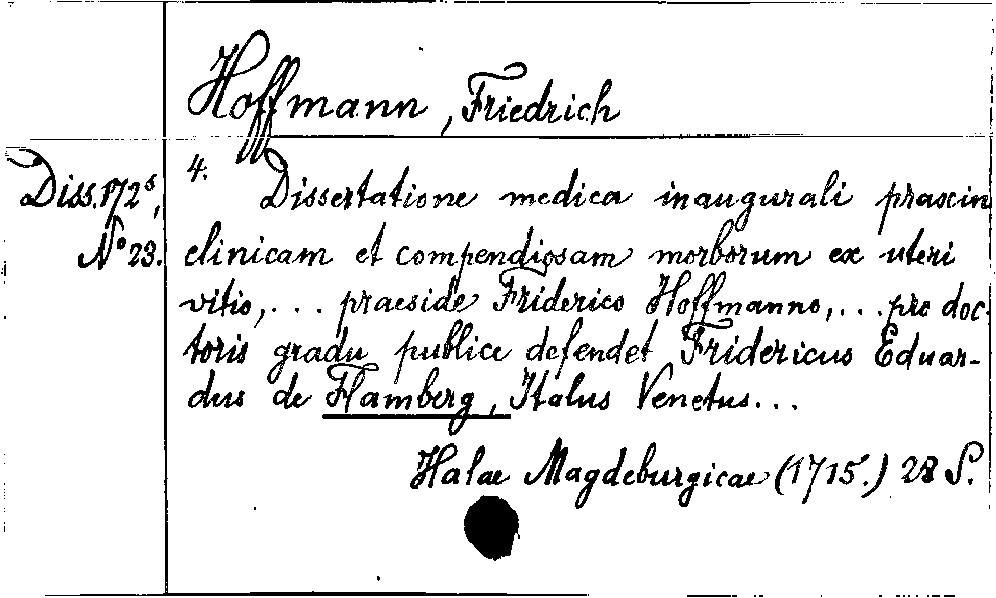 Hoffmann, Friedrich
Diss. 172⁵,
N° 23.
4. Dissertatione medica inaugurali praxin
clinicam et compendiosam morborum ex uteri
vitio, ... praeside Friderico Hoffmanno, ... pro doc-
toris gradu publice defendet Fridericus Eduar-
dus de Hamberg, Italus Venetus...
Halae Magdeburgicae (1715.) 28 S.